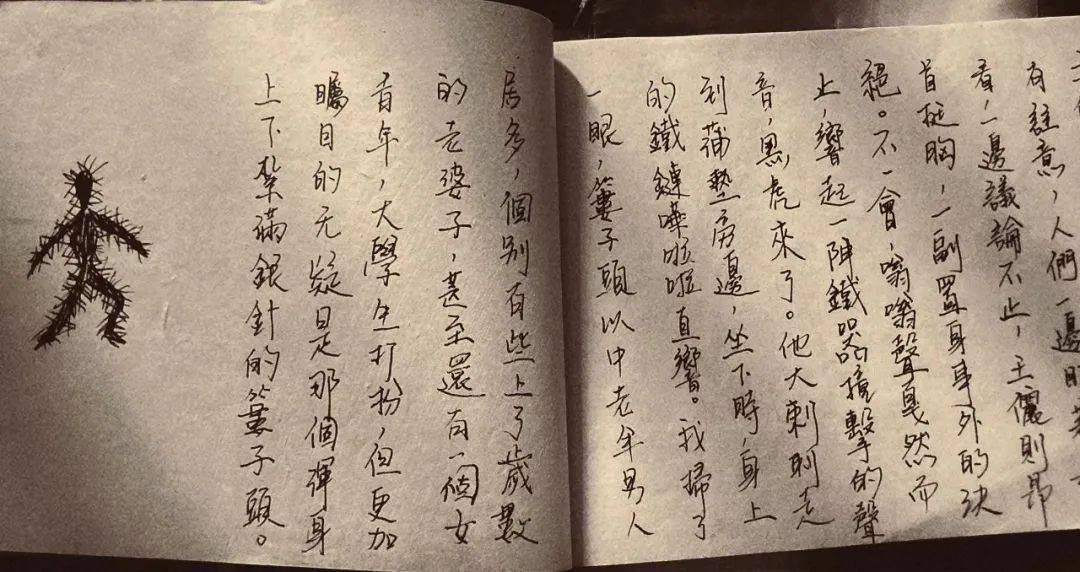 有註意,人們一邊
看,一邊議論不止,王儷則昂
首挺胸,一副置身事外的決
絕。不一會,嗡嗡聲戛然而
止,響起一陣鐵器撞擊的聲
音,黑虎來了。他大剌剌走
到蒲墊旁邊,坐下時,身上
的鐵鏈嘩啦啦直響。我掃了
一眼,簍子頭以中老年男人
居多,個别有些上了歲數
的老婆子,甚至還有一個女
青年,大學生打扮,但更加
矚目的无疑是那個渾身
上下紮滿銀針的簍子頭。